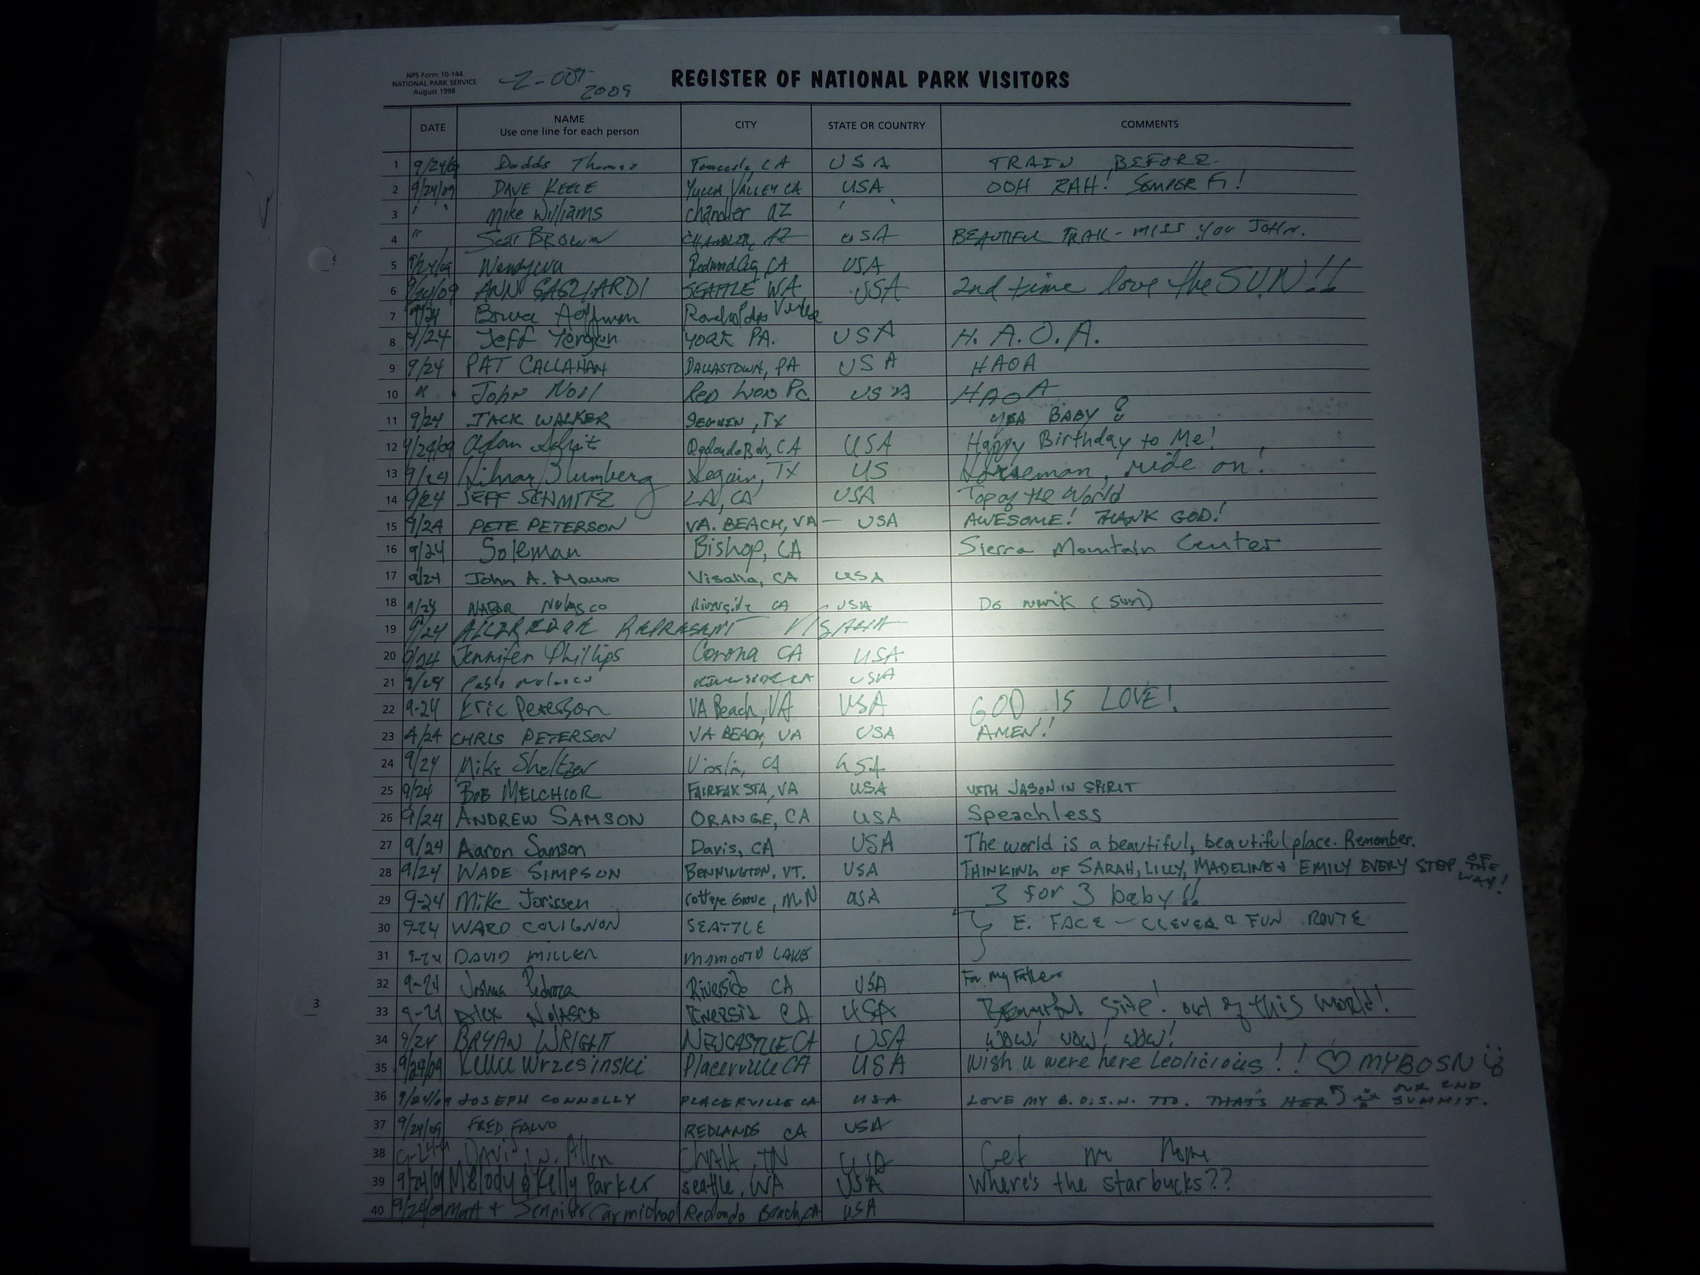 NPS Form 10-144
NATIONAL PARK SERVICE
August 1998
2-OCT-2009
REGISTER OF NATIONAL PARK VISITORS
DATE NAME Use one line for each person CITY STATE OR COUNTRY COMMENTS
1 9/24/09 Dodds Thomas Temecula, CA USA TRAIN BEFORE
2 9/24/09 DAVE KEELE YUCCA VALLEY CA USA OOH RAH! SEMPER FI!
3 " " Mike Williams Chandler AZ ' '
4 " Scott BROWN CHANDLER, AZ USA BEAUTIFUL TRAIL - MISS YOU JOHN.
5 9/24/09 CA USA
6 9/24/09 ANN GAGLIARDI SEATTLE WA USA 2nd time love the SUN!!
7 9/24
8 9/24 Jeff YORK PA. USA H.A.O.A.
9 9/24 PAT CALLAHAN DALLASTOWN, PA USA HAOA
10 " John Noll Red Lion Pa USA HAOA
11 9/24 JACK WALKER SEGUIN, TX YEA BABY!
12 9/24/09 Adam Redondo Bch, CA USA Happy Birthday to Me!
13 9/24 Blumberg Seguin, TX US Horseman, ride on!
14 9/24 JEFF SCHMITZ LA, CA USA Top of the World
15 9/24 PETE PETERSON VA. BEACH, VA — USA AWESOME! THANK GOD!
16 9/24 Soleman Bishop, CA Sierra Mountain Center
17 9/24 John A. Mauro Visalia, CA USA
18 9/24 Nolasco Riverside CA USA (sun)
19 9/24 REPRESENT VISALIA
20 9/24 Jennifer Phillips Corona CA USA
21 9/24 Pablo Nolasco RIVERSIDE CA USA
22 9-24 Eric Peterson VA Beach, VA USA GOD IS LOVE!
23 9/24 CHRIS PETERSON VA BEACH, VA USA AMEN!!
24 9/24 Mike Sheltzer Visalia, CA USA
25 9/24 BOB MELCHIOR FAIRFAX STA, VA USA WITH JASON IN SPIRIT
26 9/24 ANDREW SAMSON ORANGE, CA USA Speachless
27 9/24 Aaron Samson Davis, CA USA The world is a beautiful, beautiful place. Remember.
28 9/24 WADE SIMPSON BENNINGTON, VT. USA THINKING OF SARAH, LILLY, MADELINE & EMILY EVERY STEP OF THE WAY!
29 9-24 Mike Jorissen Cottage Grove, MN USA 3 for 3 baby!!
30 9-24 WARD COLIGNON SEATTLE E. FACE - CLEVER & FUN ROUTE
31 9-24 DAVID MILLER MAMMOTH LAKES
32 9-24 Joshua Pedroza Riverside CA USA For my Father
33 9-24 NOLASCO RIVERSIDE CA USA Beautiful Site! out of this world!
34 9/24 BRYAN WRIGHT NEWCASTLE CA USA WOW! WOW! WOW!
35 9/24/09 Kellie Wrzesinski Placerville CA USA Wish u were here Leolicious!! ♡ MYBOSN
36 9/24/09 JOSEPH CONNOLLY PLACERVILLE CA USA LOVE MY B.O.S.N. TTO. THAT'S HER OUR 2ND SUMMIT.
37 9/24/09 FRED FALVO REDLANDS CA USA
38 9-24-09 David W. Allen TN USA Get me Home
39 9/24/09 Melody & Kelly Parker seattle, WA USA Where's the starbucks??
40 9/24/09 Matt & Jennifer Carmichael Redondo Beach, CA USA
3